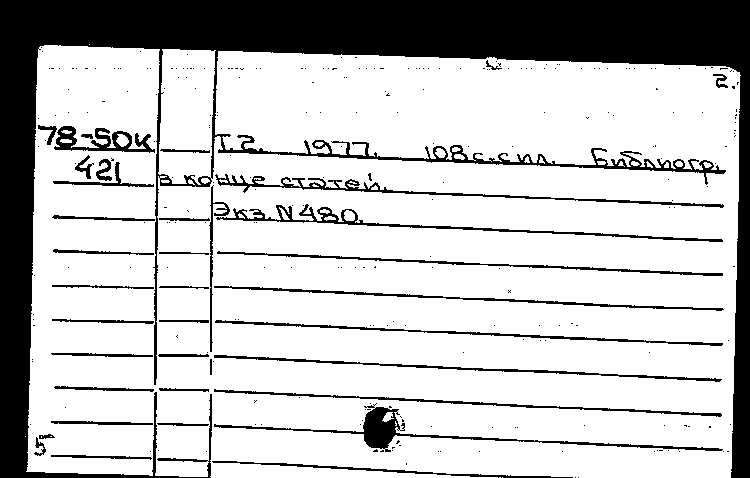 2.
78-SOK Т.2. 1977. 108с.с ил. Библиогр.
421 в конце статей.
Экз. N480.
5